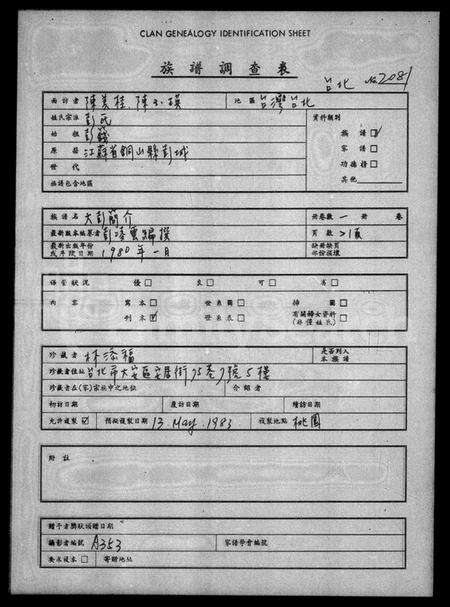 CLAN GENEALOGY IDENTIFICATION SHEET
族譜調查表
台北 No. 2081
面訪者 陳美桂、陳 地區 台灣台北
姓氏宗派 彭氏 資料類別
始祖 彭籛 族譜 ☑
原籍 江蘇省銅山縣彭城 家譜 □
世代 功德榜 □
族譜包含地區 其他
族譜名 大彭簡介 冊卷數 一 冊 卷
最新版本編纂者 彭 編撰 頁數 21頁
最新出版年份 或手院日期 1980 年 一 月 缺冊缺頁 部份損壞
保管狀況 優 □ 良 □ 可 □ 劣 □
內容 寫本 □ 世系圖 □ 插圖 □
刊本 ☑ 世系表 □ 有關婦女資料 (非僅姓氏) □
珍藏者 林添福 是否列入 本族譜
珍藏者住址 台北市大安區安居街75巷7號5樓
珍藏者在(家)宗族中之地位 介紹者
初訪日期 度訪日期 續訪日期
允許複製 ☑ 預擬複製日期 13 May 1983 複製地點 桃園
附註
贈予者獎狀頒贈日期
攝影者編號 A353 家譜學會編號
要求複本 □ 寄贈地址